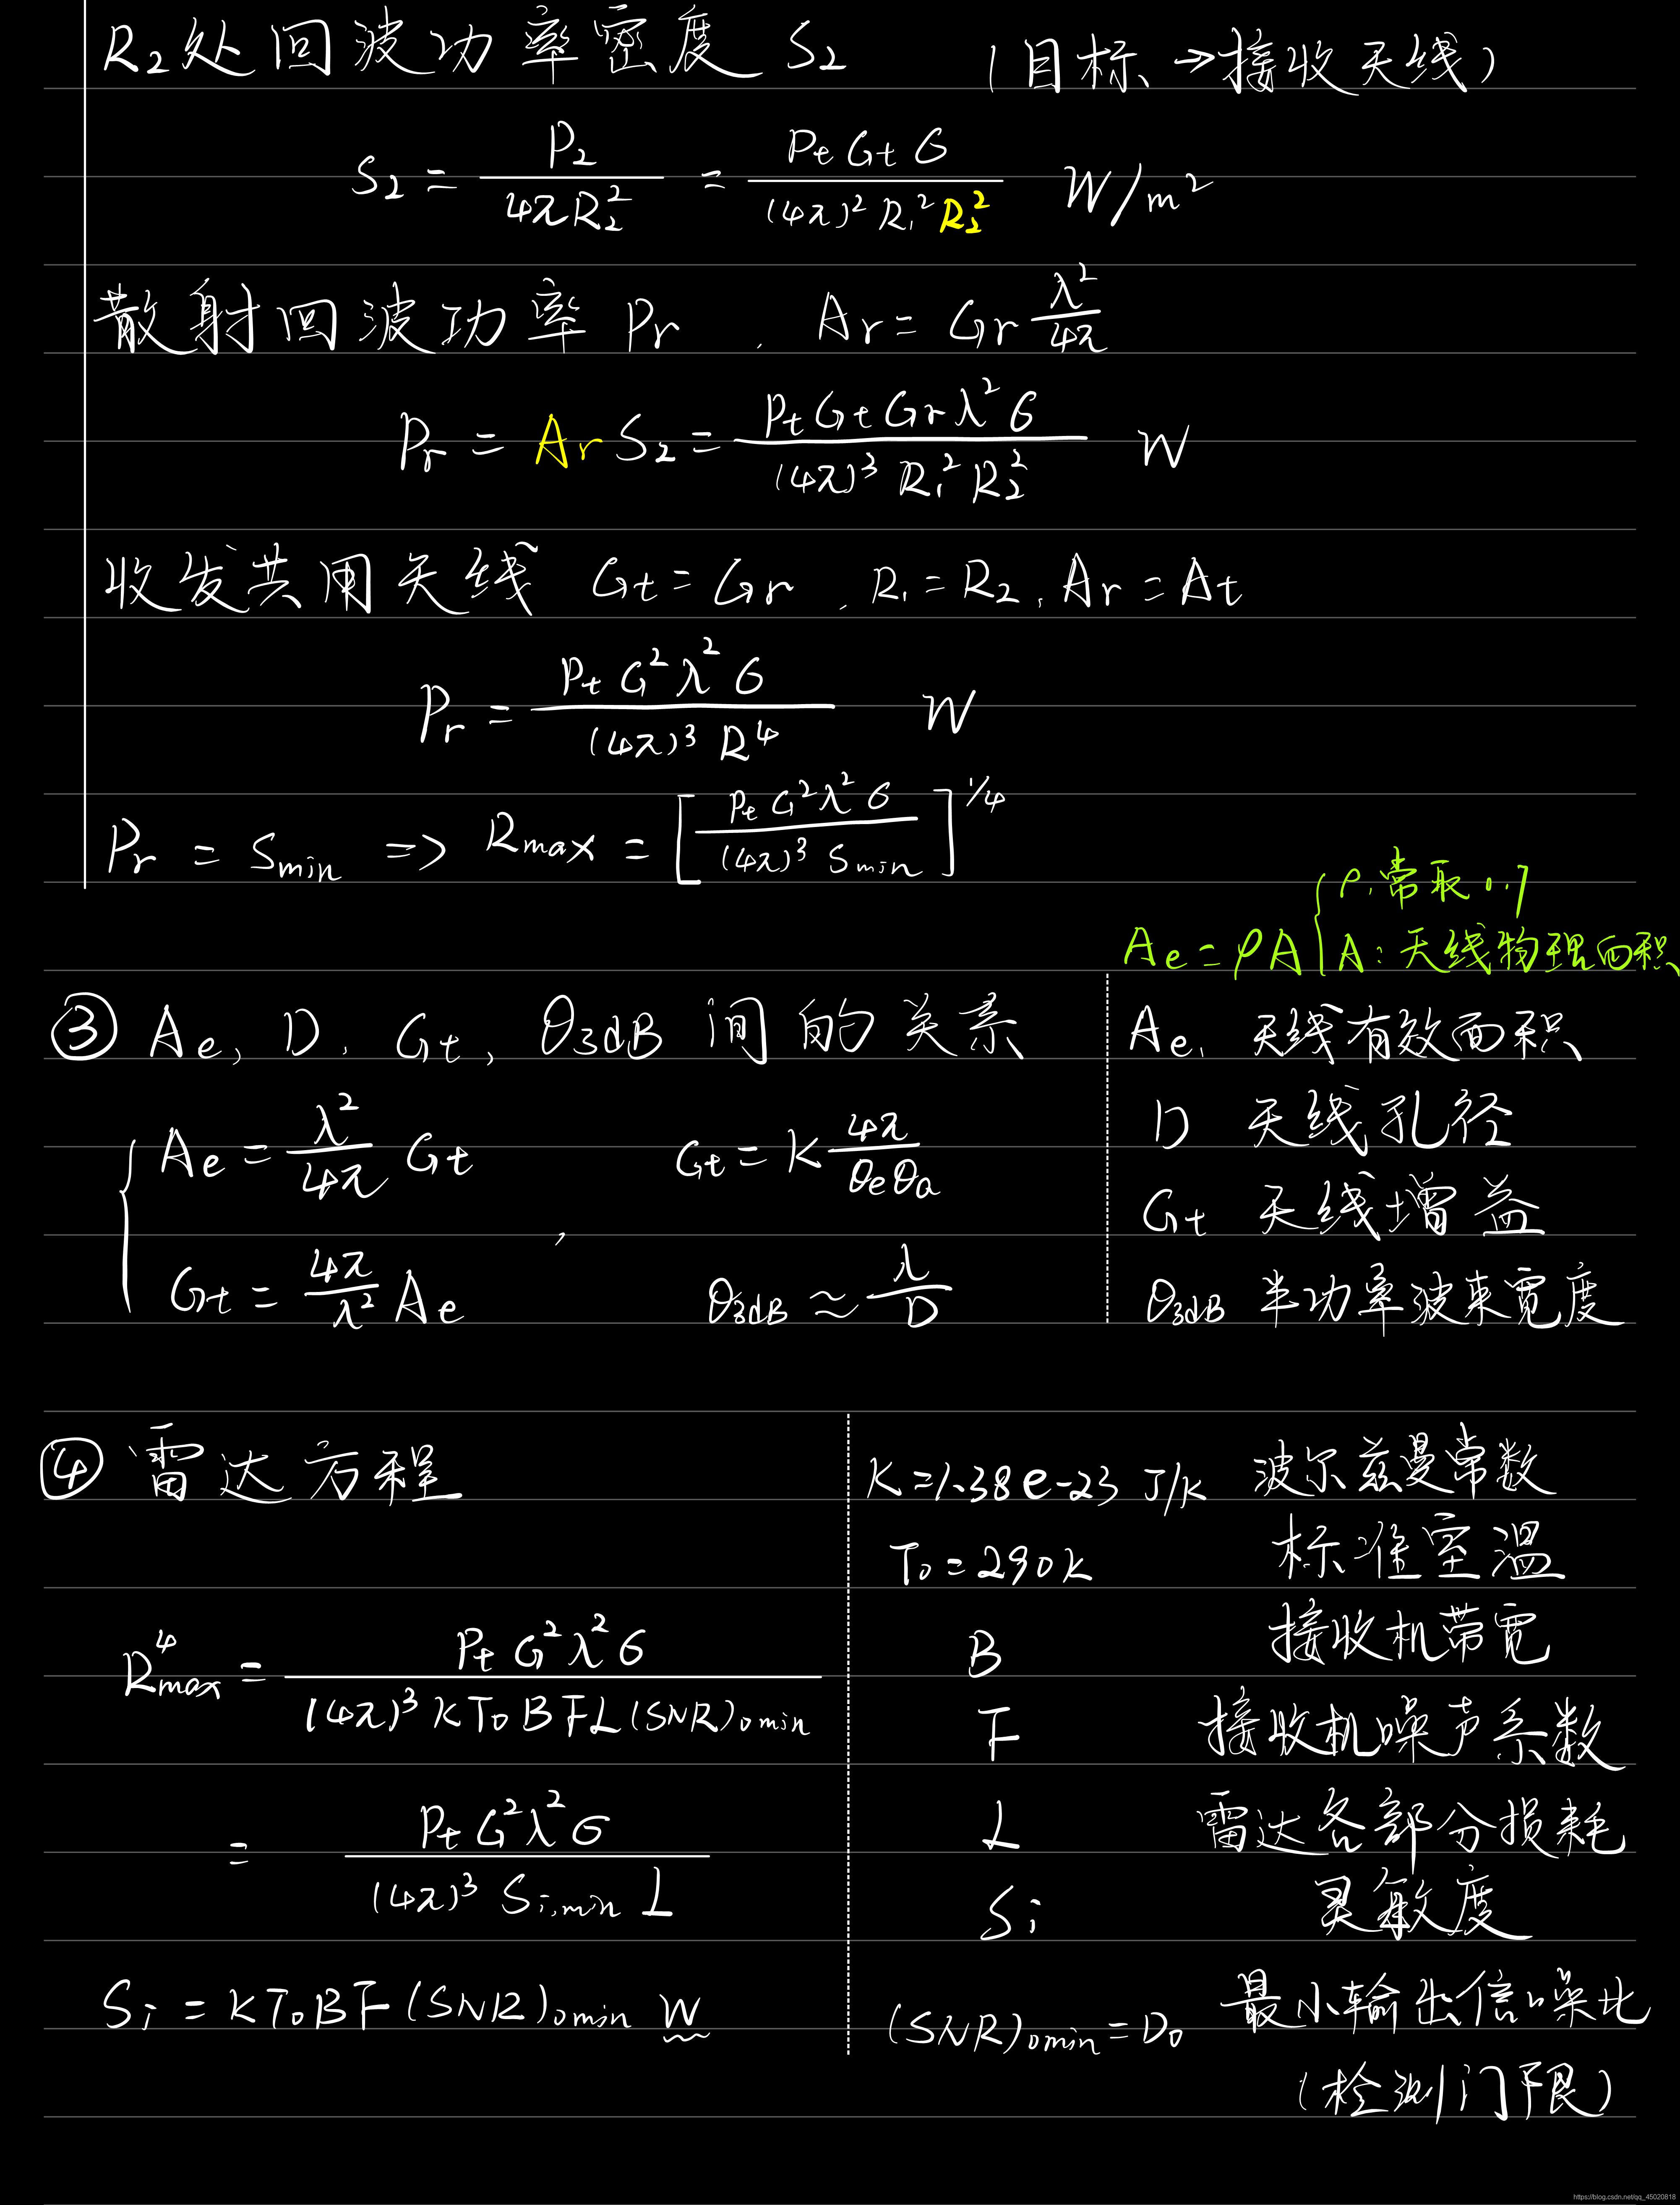 R₂处回波功率密度 S₂ (目标→接收天线)
S₂ = P₂ / (4πR₂²) = PtGtσ / ((4π)²R₁²R₂²) W/m²
散射回波功率 Pr , Ar = Gr λ²/4π
Pr = Ar S₂ = PtGtGrλ²σ / ((4π)³R₁²R₂²) W
收发共用天线 Gt = Gr , R₁ = R₂ , Ar = At
Pr = PtG²λ²σ / ((4π)³R⁴) W
Pr = Smin => Rmax = [PtG²λ²σ / ((4π)³Smin)]^1/4
Ae = ρA { ρ:常取0.7
A:天线物理面积
③ Ae, D, Gt, θ3dB 间的关系
Ae = λ²/4π Gt , Gt = K 4π/(θeθa)
Gt = 4π/λ² Ae θ3dB ≈ λ/D
Ae, 天线有效面积
D 天线孔径
Gt 天线增益
θ3dB 半功率波束宽度
④ 雷达方程
R⁴max = PtG²λ²σ / ((4π)³KT₀BFL(SNR)omin)
= PtG²λ²σ / ((4π)³Si,min L)
Si = KT₀BF(SNR)omin W
K=1.38e-23 J/K 波尔兹曼常数
T₀=290K 标准室温
B 接收机带宽
F 接收机噪声系数
L 雷达各部分损耗
Si 灵敏度
(SNR)omin = D₀ 最小输出信噪比
(检测门限)
https://blog.csdn.net/qq_45020818